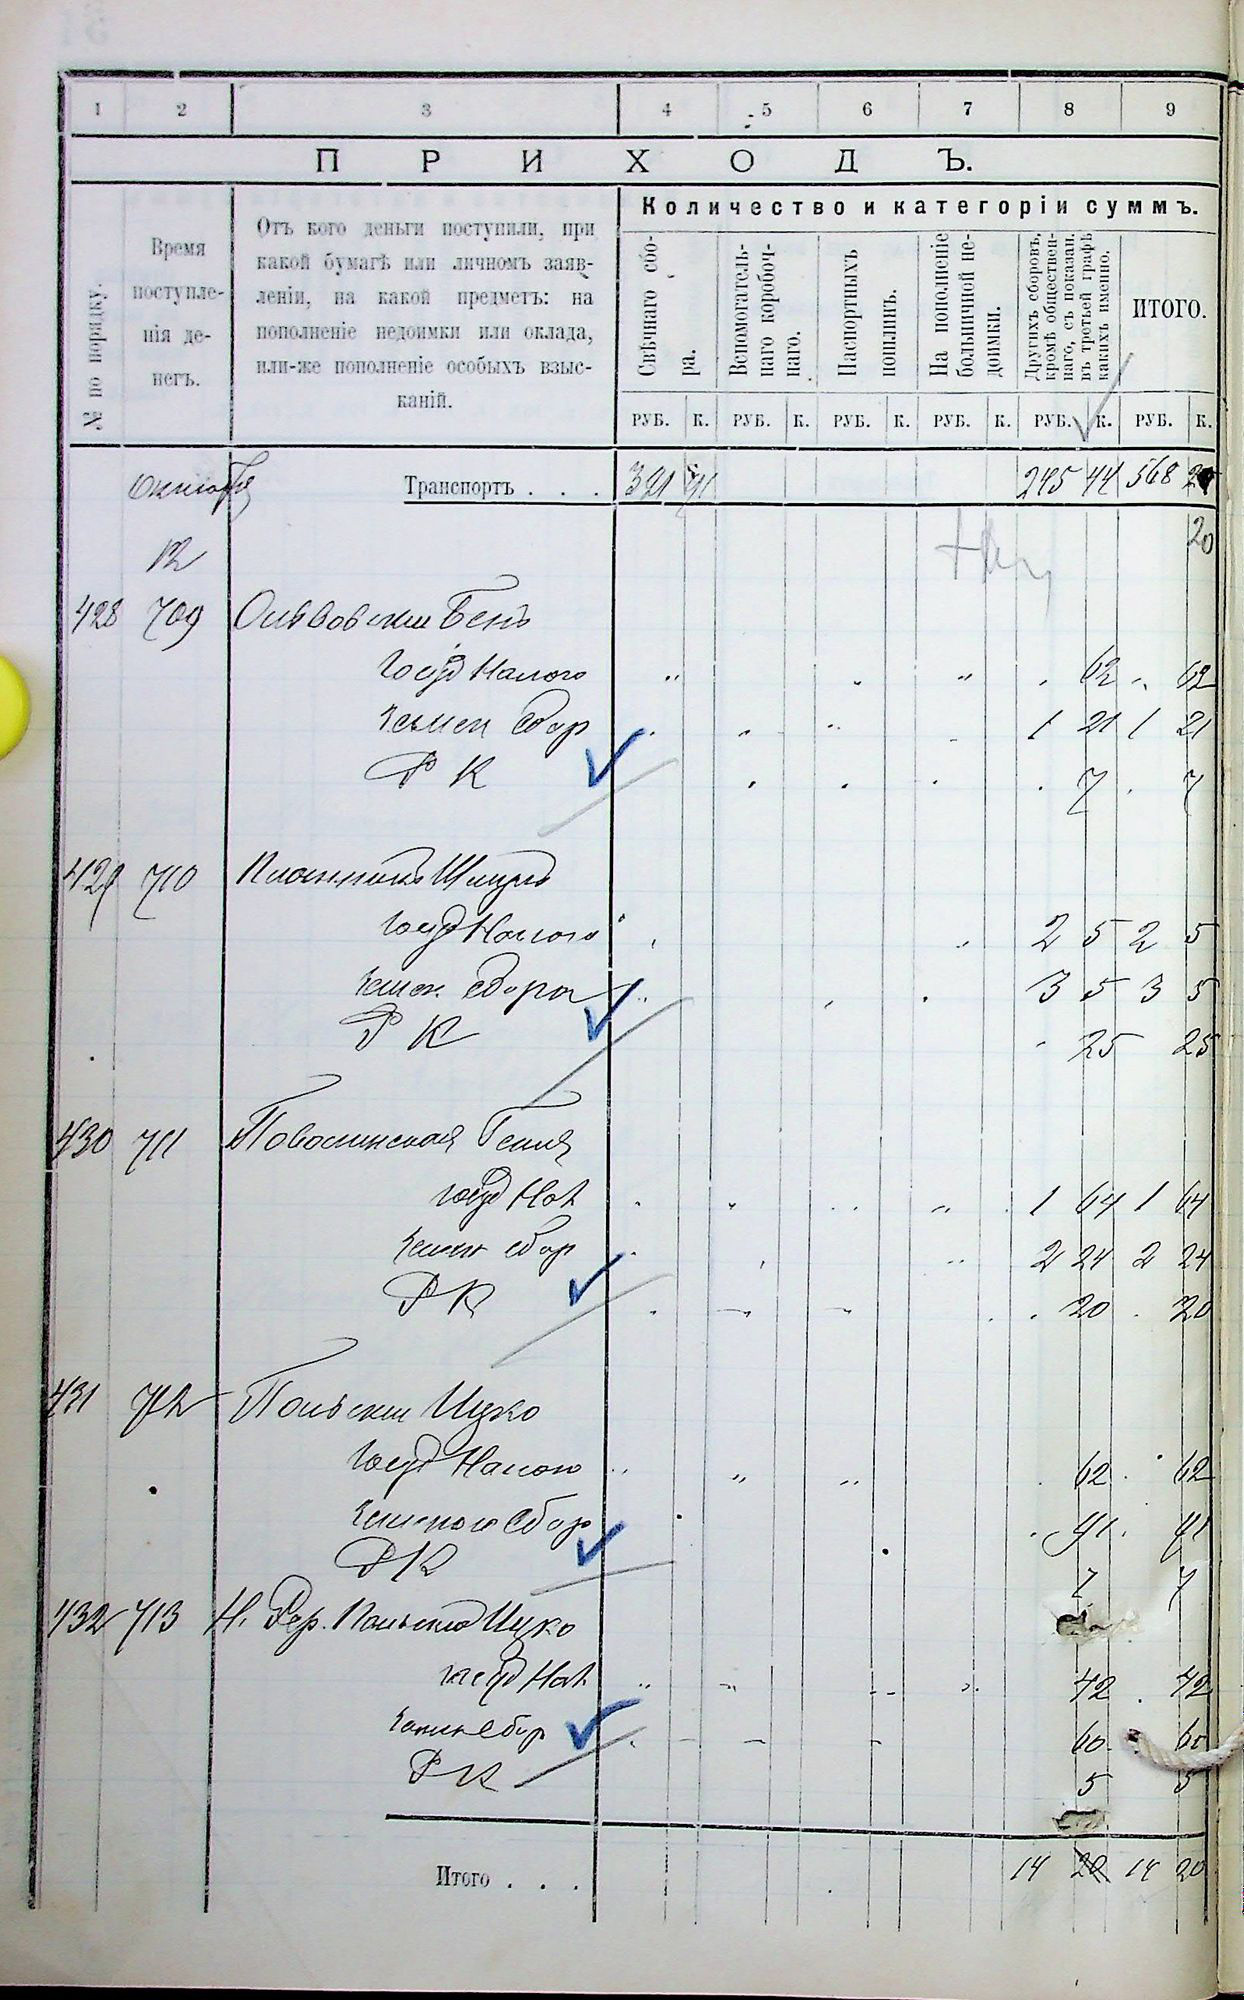 1 2 3 4 5 6 7 8 9
ПРИХОДЪ.
№ по порядку.
Время поступле-
нія де-
негъ.
Отъ кого деньги поступили, при
какой бумагѣ или личномъ заяв-
леніи, на какой предметъ: на
пополненіе недоимки или оклада,
или-же пополненіе особыхъ взыс-
каній.
Количество и категоріи суммъ.
Свѣчнаго сбо-
ра.
Вспомогатель-
наго коробоч-
наго.
Паспортныхъ
пошлинъ.
На пополненіе
больничной не-
доимки.
Другихъ сборовъ,
кромѣ обществен-
наго, съ показан.
въ третьей графѣ
какихъ именно.
ИТОГО.
РУБ. К. РУБ. К. РУБ. К. РУБ. К. РУБ. К. РУБ. К.
Октября Транспортъ . . . 44 568
20
12
428 709
Госуд Налога 62 62
Земск Сбор 1 21 1 21
Р К 7 7
429 710
Госуд Налога 2 5 2 5
Земск. Сбора 3 5 3 5
Р К 25 25
430 711
Госуд Нал 1 64 1 64
Земск Сбор 2 24 2 24
Р К 20 20
431 712 Польскій Ицко
Госуд Налога 62 62
Земскій Сбор 91 91
Р К 7 7
432 713 Польскій Ицко
Госуд Нал 42 42
Земск Сбор 60 60
Р К 5 5
Итого . . . 14 20 14 20